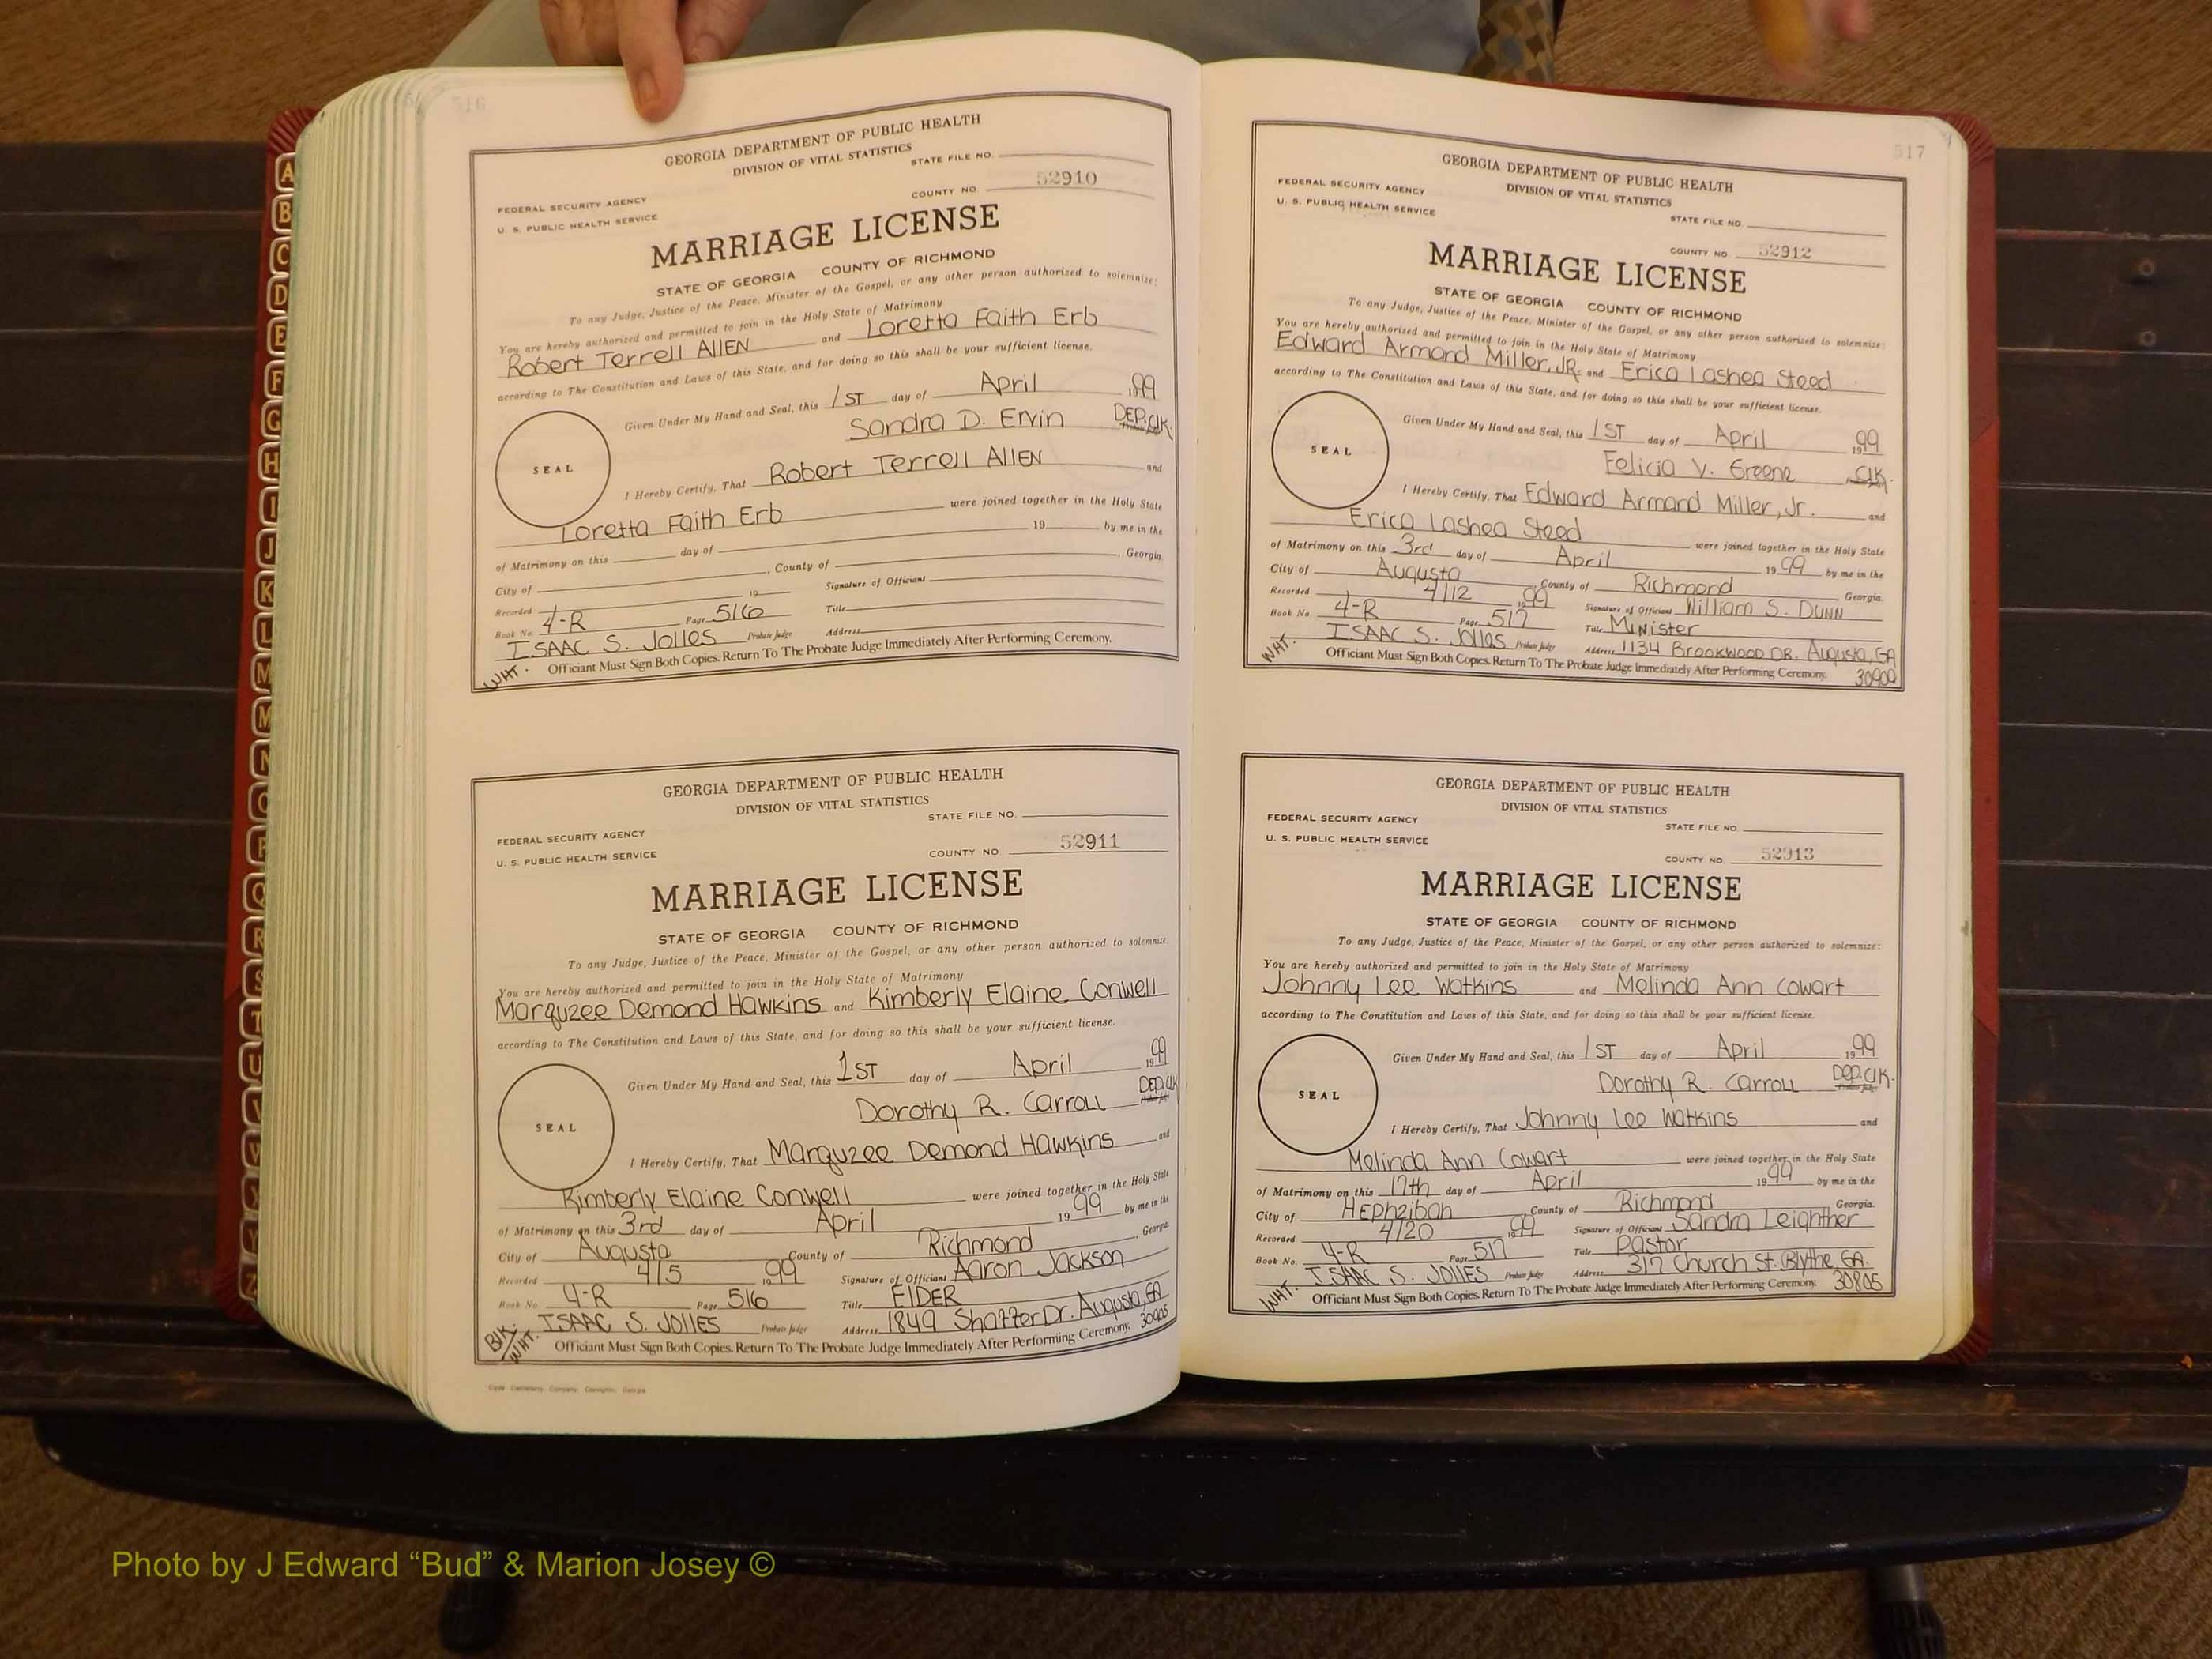 A
B
C
D
E
F
G
H
I
J
K
L
M
M
N
O
P
Q
R
S
T
U
V
W
X
Y
Z
516
GEORGIA DEPARTMENT OF PUBLIC HEALTH
DIVISION OF VITAL STATISTICS
STATE FILE NO.
COUNTY NO. 52910
FEDERAL SECURITY AGENCY
U. S. PUBLIC HEALTH SERVICE
MARRIAGE LICENSE
STATE OF GEORGIA COUNTY OF RICHMOND
To any Judge, Justice of the Peace, Minister of the Gospel, or any other person authorized to solemnize:
You are hereby authorized and permitted to join in the Holy State of Matrimony
Robert Terrell Allen and Loretta Faith Erb
according to The Constitution and Laws of this State, and for doing so this shall be your sufficient license.
Given Under My Hand and Seal, this 1ST day of April 1999
Sandra D. Ervin DEP. Clk.
SEAL
I Hereby Certify, That Robert Terrell Allen and
Loretta Faith Erb were joined together in the Holy State
of Matrimony on this day of 19 by me in the
City of , County of , Georgia.
Recorded 19 Signature of Officiant
Book No. 4-R Page 516 Title
ISAAC S. Jolles Probate Judge Address
WHT. Officiant Must Sign Both Copies. Return To The Probate Judge Immediately After Performing Ceremony.
GEORGIA DEPARTMENT OF PUBLIC HEALTH
DIVISION OF VITAL STATISTICS
STATE FILE NO.
FEDERAL SECURITY AGENCY
U. S. PUBLIC HEALTH SERVICE
COUNTY NO. 52911
MARRIAGE LICENSE
STATE OF GEORGIA COUNTY OF RICHMOND
To any Judge, Justice of the Peace, Minister of the Gospel, or any other person authorized to solemnize:
You are hereby authorized and permitted to join in the Holy State of Matrimony
Marquzee Demond Hawkins and Kimberly Elaine Conwell
according to The Constitution and Laws of this State, and for doing so this shall be your sufficient license.
Given Under My Hand and Seal, this 1ST day of April 1999
Dorothy R. Carroll DEP. Clk
SEAL
I Hereby Certify, That Marquzee Demond Hawkins and
Kimberly Elaine Conwell were joined together in the Holy State
of Matrimony on this 3rd day of April 1999 by me in the
City of Augusta County of Richmond , Georgia.
Recorded 4/5 1999 Signature of Officiant Aaron Jackson
Book No. 4-R Page 516 Title ELDER
ISAAC S. Jolles Probate Judge Address 1849 Shaffer Dr. Augusta, GA 30905
BLK. WHT. Officiant Must Sign Both Copies. Return To The Probate Judge Immediately After Performing Ceremony.
517
GEORGIA DEPARTMENT OF PUBLIC HEALTH
DIVISION OF VITAL STATISTICS
FEDERAL SECURITY AGENCY
U. S. PUBLIC HEALTH SERVICE
STATE FILE NO.
COUNTY NO. 52912
MARRIAGE LICENSE
STATE OF GEORGIA COUNTY OF RICHMOND
To any Judge, Justice of the Peace, Minister of the Gospel, or any other person authorized to solemnize:
You are hereby authorized and permitted to join in the Holy State of Matrimony
Edward Armand Miller, JR. and Erica Lashea Steed
according to The Constitution and Laws of this State, and for doing so this shall be your sufficient license.
Given Under My Hand and Seal, this 1ST day of April 1999
Felicia V. Greene Clk.
SEAL
I Hereby Certify, That Edward Armand Miller, Jr. and
Erica Lashea Steed were joined together in the Holy State
of Matrimony on this 3rd day of April 1999 by me in the
City of Augusta , County of Richmond , Georgia.
Recorded 4/12 1999 Signature of Officiant William S. Dunn
Book No. 4-R Page 517 Title Minister
ISAAC S. Jolles Probate Judge Address 1134 Brookwood DR. Augusta, GA
WHT. Officiant Must Sign Both Copies. Return To The Probate Judge Immediately After Performing Ceremony. 30909
GEORGIA DEPARTMENT OF PUBLIC HEALTH
DIVISION OF VITAL STATISTICS
FEDERAL SECURITY AGENCY
STATE FILE NO.
U. S. PUBLIC HEALTH SERVICE
COUNTY NO. 52913
MARRIAGE LICENSE
STATE OF GEORGIA COUNTY OF RICHMOND
To any Judge, Justice of the Peace, Minister of the Gospel, or any other person authorized to solemnize:
You are hereby authorized and permitted to join in the Holy State of Matrimony
Johnny Lee Watkins and Melinda Ann Cowart
according to The Constitution and Laws of this State, and for doing so this shall be your sufficient license.
Given Under My Hand and Seal, this 1ST day of April 1999
Dorothy R. Carroll DEP. Clk.
SEAL
I Hereby Certify, That Johnny Lee Watkins and
Melinda Ann Cowart were joined together in the Holy State
of Matrimony on this 17th day of April 1999 by me in the
City of Hephzibah , County of Richmond Georgia.
Recorded 4/20 1999 Signature of Officiant Sandra Leighther
Book No. 4-R Page 517 Title Pastor
ISAAC S. Jolles Probate Judge Address 317 Church St. Blythe, GA.
WHT. Officiant Must Sign Both Copies. Return To The Probate Judge Immediately After Performing Ceremony. 30805
Photo by J Edward “Bud” & Marion Josey ©